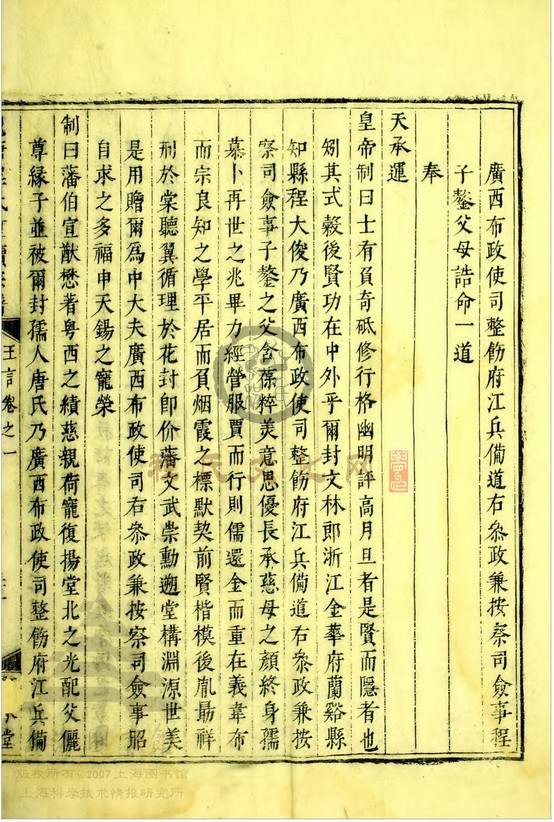 廣西布政使司整飭府江兵備道右叅政兼按察司僉事程
子鏊父母誥命一道
奉
天承運
皇帝制曰士有負奇砥修行格幽明評高月旦者是賢而隱者也
矧其式穀後賢功在中外乎爾封文林郎浙江金華府蘭谿縣
知縣程大俊乃廣西布政使司整飭府江兵備道右叅政兼按
察司僉事子鏊之父含葆粹美意思優長承慈母之顏終身孺
慕卜再世之兆畢力經營服賈而行則儒還金而重在義韋布
而宗良知之學平居而負烟霞之標默契前賢楷模後胤勗祥
刑於棠聽翼循理於花封即价藩文武崇勳遡堂構淵源世美
是用贈爾爲中大夫廣西布政使司右叅政兼按察司僉事昭
自求之多福申天錫之寵榮
制曰藩伯宣猷懋著粤西之績慈親荷寵復揚堂北之光配父儷
尊緣子並被爾封孺人唐氏乃廣西布政使司整飭府江兵備
王言卷之一
堂
版权所有©2007上海图书馆
上海科学技术情报研究所